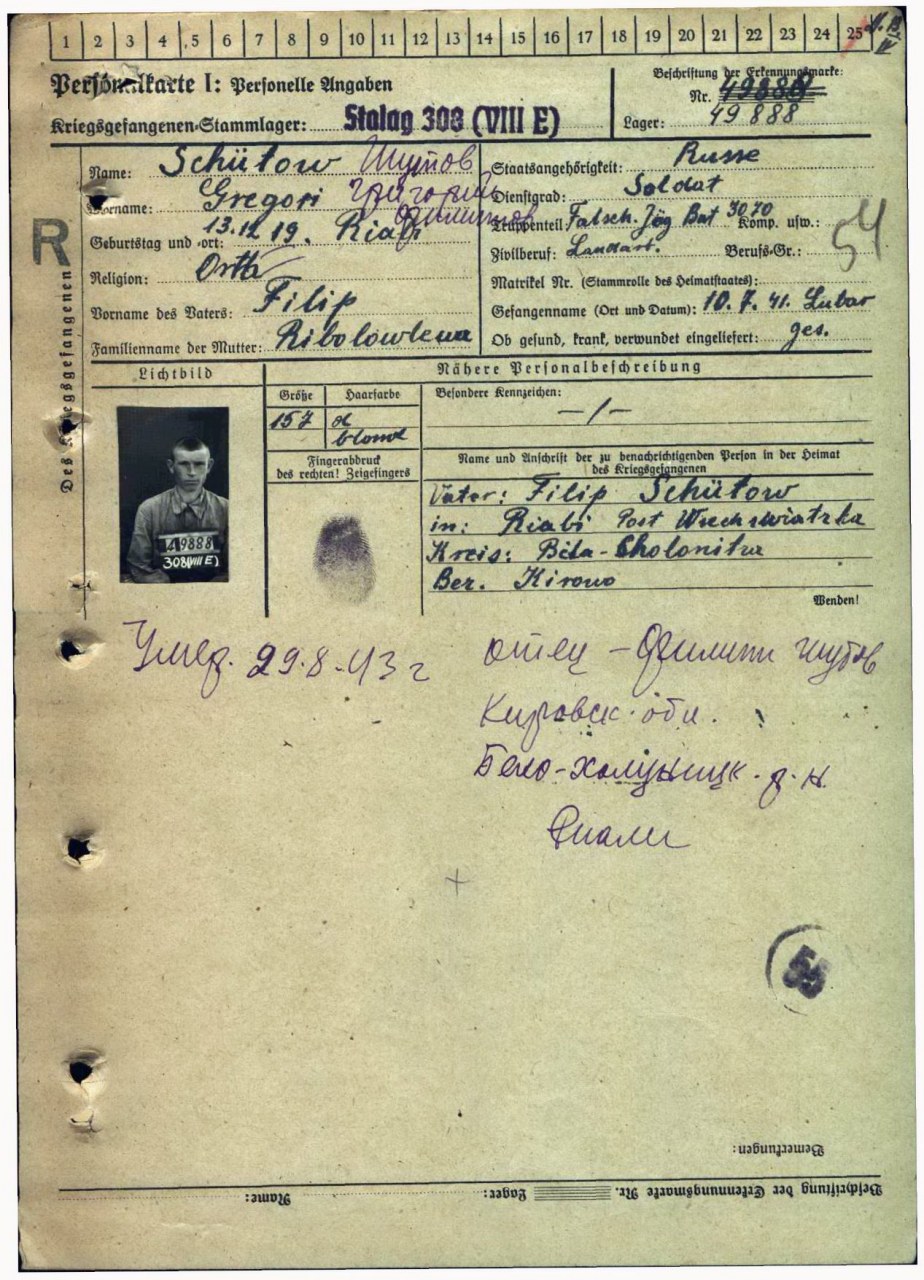 1 2 3 4 5 6 7 8 9 10 11 12 13 14 15 16 17 18 19 20 21 22 23 24 25
Personalkarte I: Personelle Angaben
Kriegsgefangenen-Stammlager: Stalag 308 (VIII E)
Beschriftung der Erkennungsmarke:
Nr. 49888
49 888
Lager:
Des Kriegsgefangenen
R
Name: Schütow Шутов
Vorname: Gregori Григорий
Geburtstag und -ort: 13.12.19. Riabi
Religion: Orth
Vorname des Vaters: Filip
Familienname der Mutter: Ribolowlewa
Staatsangehörigkeit: Russe
Dienstgrad: Soldat
Truppenteil: Falsch. Jäg Bat 3070 Komp. usw.:
Zivilberuf: Landarb. Berufs-Gr.:
54
Matrikel Nr. (Stammrolle des Heimatstaates):
Gefangenname (Ort und Datum): 10.7.41. Lubar
Ob gesund, krank, verwundet eingeliefert: ges.
Lichtbild
Nähere Personalbeschreibung
Größe
157
Haarfarbe
d blond
Besondere Kennzeichen:
-/-
Fingerabdruck
des rechten! Zeigefingers
49888
308(VIII E)
Name und Anschrift der zu benachrichtigenden Person in der Heimat
des Kriegsgefangenen
Vater: Filip Schütow
in: Riabi Post Wsechswiatzka
Kreis: Bila-Cholonitza
Ber. Kirowo
Wenden!
Умер. 29.8.43 г
отец - Филипп Шутов
Кировск. обл.
Бело-холуницк. р. н.
Bemerkungen:
Beschriftung der Erkennungsmarke Nr. Lager: Name: